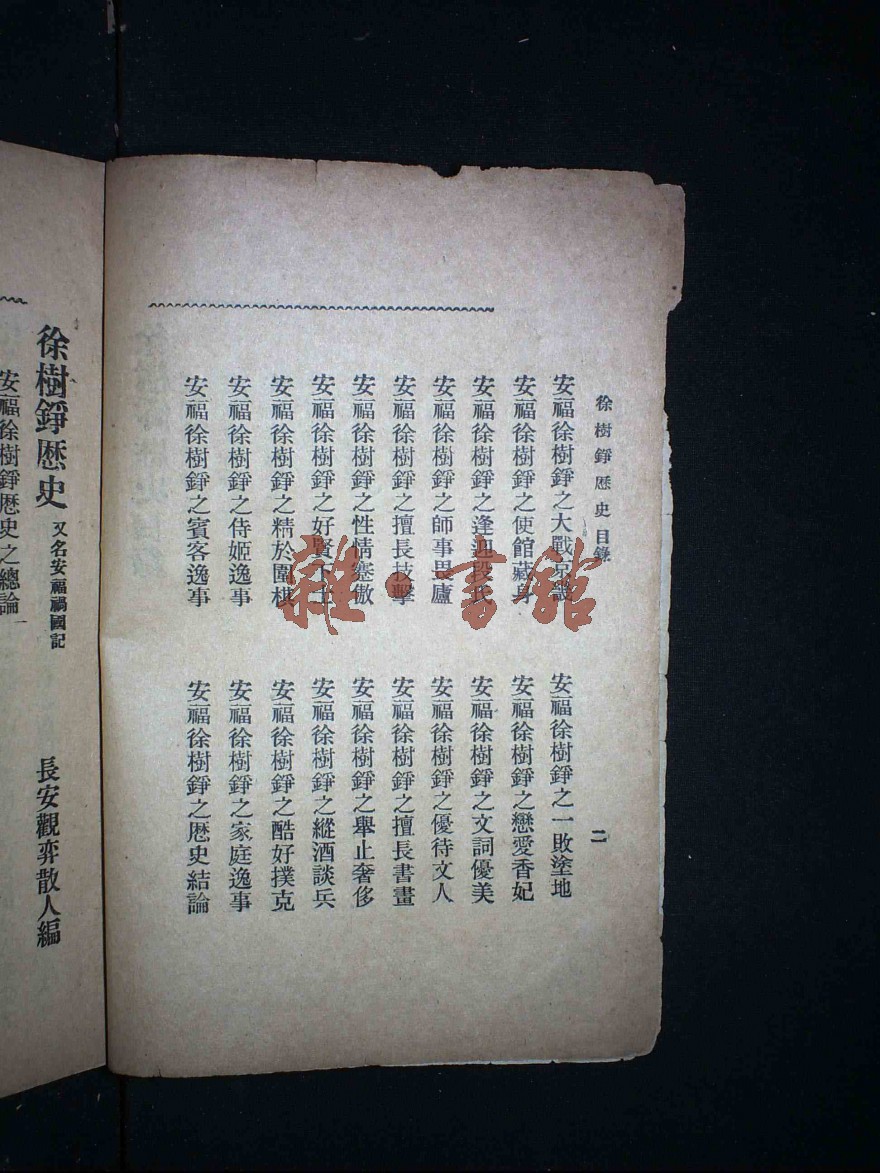 徐樹錚歷史 目錄
二
安福徐樹錚之大戰京畿
安福徐樹錚之一敗塗地
安福徐樹錚之使館藏身
安福徐樹錚之戀愛香妃
安福徐樹錚之逢迎段氏
安福徐樹錚之文詞優美
安福徐樹錚之師事畏廬
安福徐樹錚之優待文人
安福徐樹錚之擅長技擊
安福徐樹錚之擅長書畫
安福徐樹錚之性情蹇傲
安福徐樹錚之舉止奢侈
安福徐樹錚之好賢下士
安福徐樹錚之縱酒談兵
安福徐樹錚之精於圍棋
安福徐樹錚之酷好撲克
安福徐樹錚之侍姬逸事
安福徐樹錚之家庭逸事
安福徐樹錚之賓客逸事
安福徐樹錚之歷史結論
徐樹錚歷史 又名安福禍國記
長安觀弈散人編
安福徐樹錚歷史之總論
雜·書館